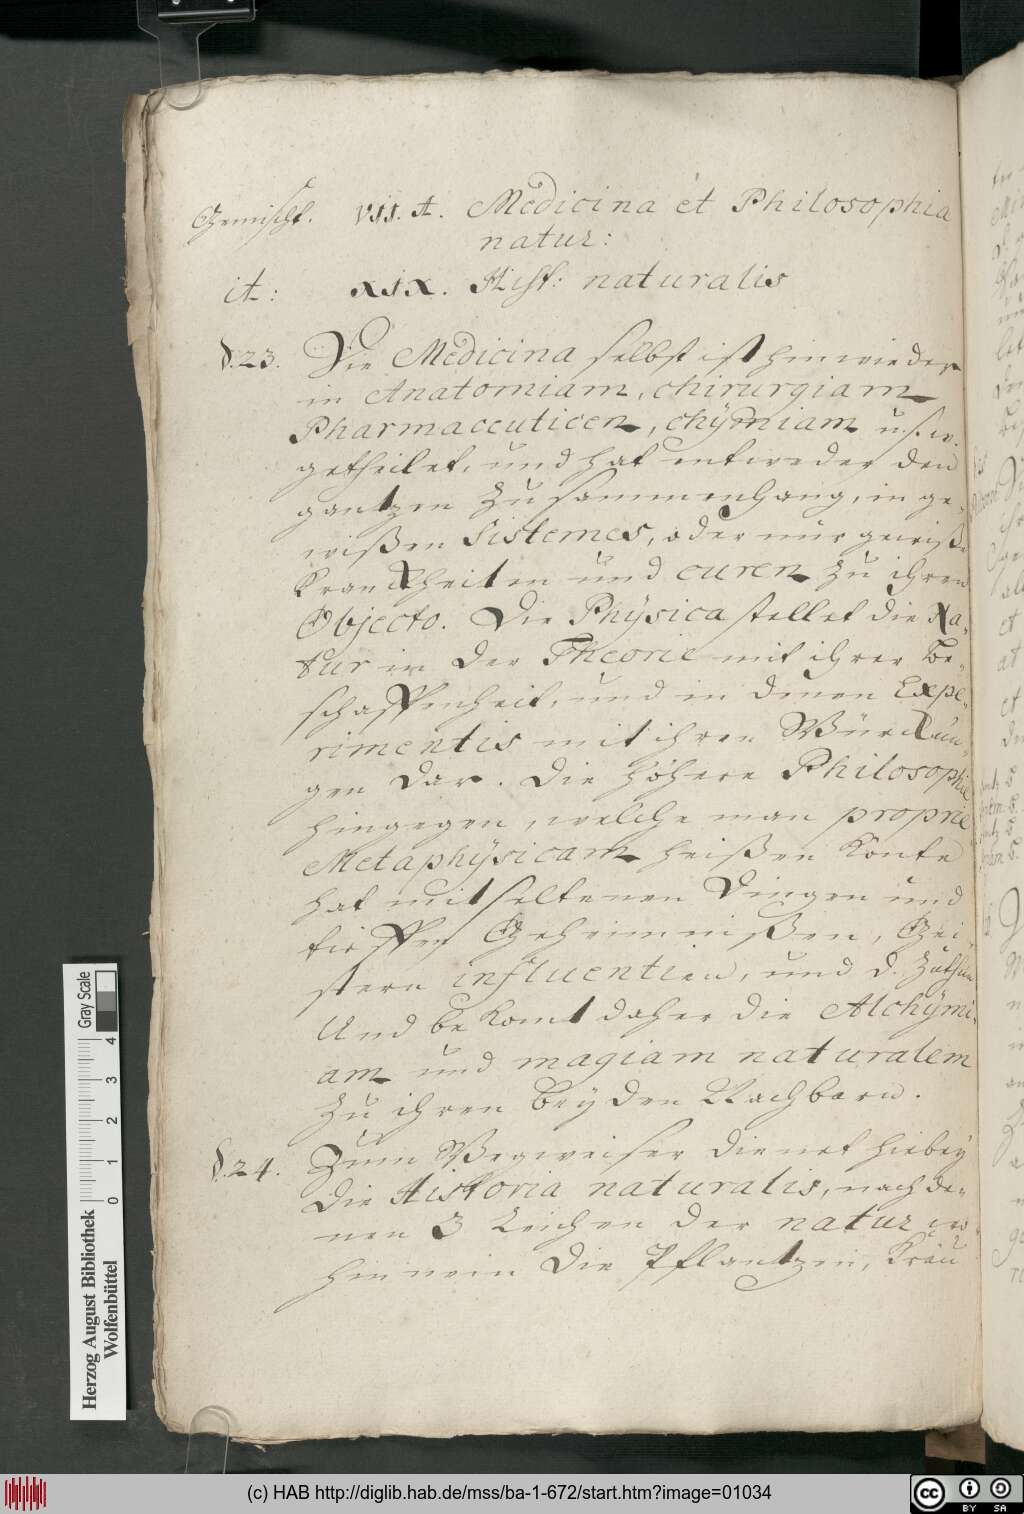 Gemischt. VII. A. Medicina et Philosophia
natur:
it: XIX. Hist: naturalis
§.23. Die Medicina selbst ist hinwieder
in Anatomiam, chirurgiam
Pharmaceuticen, chÿmiam u.s.w.
getheilet, und hat entweder den
gantzen Zusammenhang, in ge-
wißen Sistemes, oder nur gewiße
Kranckheiten und curen zu ihren
Objecto. Die Phÿsica stellet die Na-
tur in der Theorie mit ihrer Be-
schaffenheit, und in denen Expe-
rimentis mit ihren Würckun-
gen dar. Die höhere Philosophie
hingegen, welche man proprie
Metaphÿsicam heißen konte
hat mit seltenen Dingen und
tieffen Geheimnißen, Gei-
stern influentien, und d.
Und bekomt daher die Alchÿmi-
am und magiam naturalem
zu ihren beyden Nachbarn.
§.24. Zum Wegweiser dienet hiebey
Die Historia naturalis, nach de-
nen 3 Reichen der natur, wo
hinnein die Pflantzen, Kräu
Herzog August Bibliothek
Wolfenbüttel
0 1 2 3 4
Gray Scale
(c) HAB http://diglib.hab.de/mss/ba-1-672/start.htm?image=01034
cc BY SA